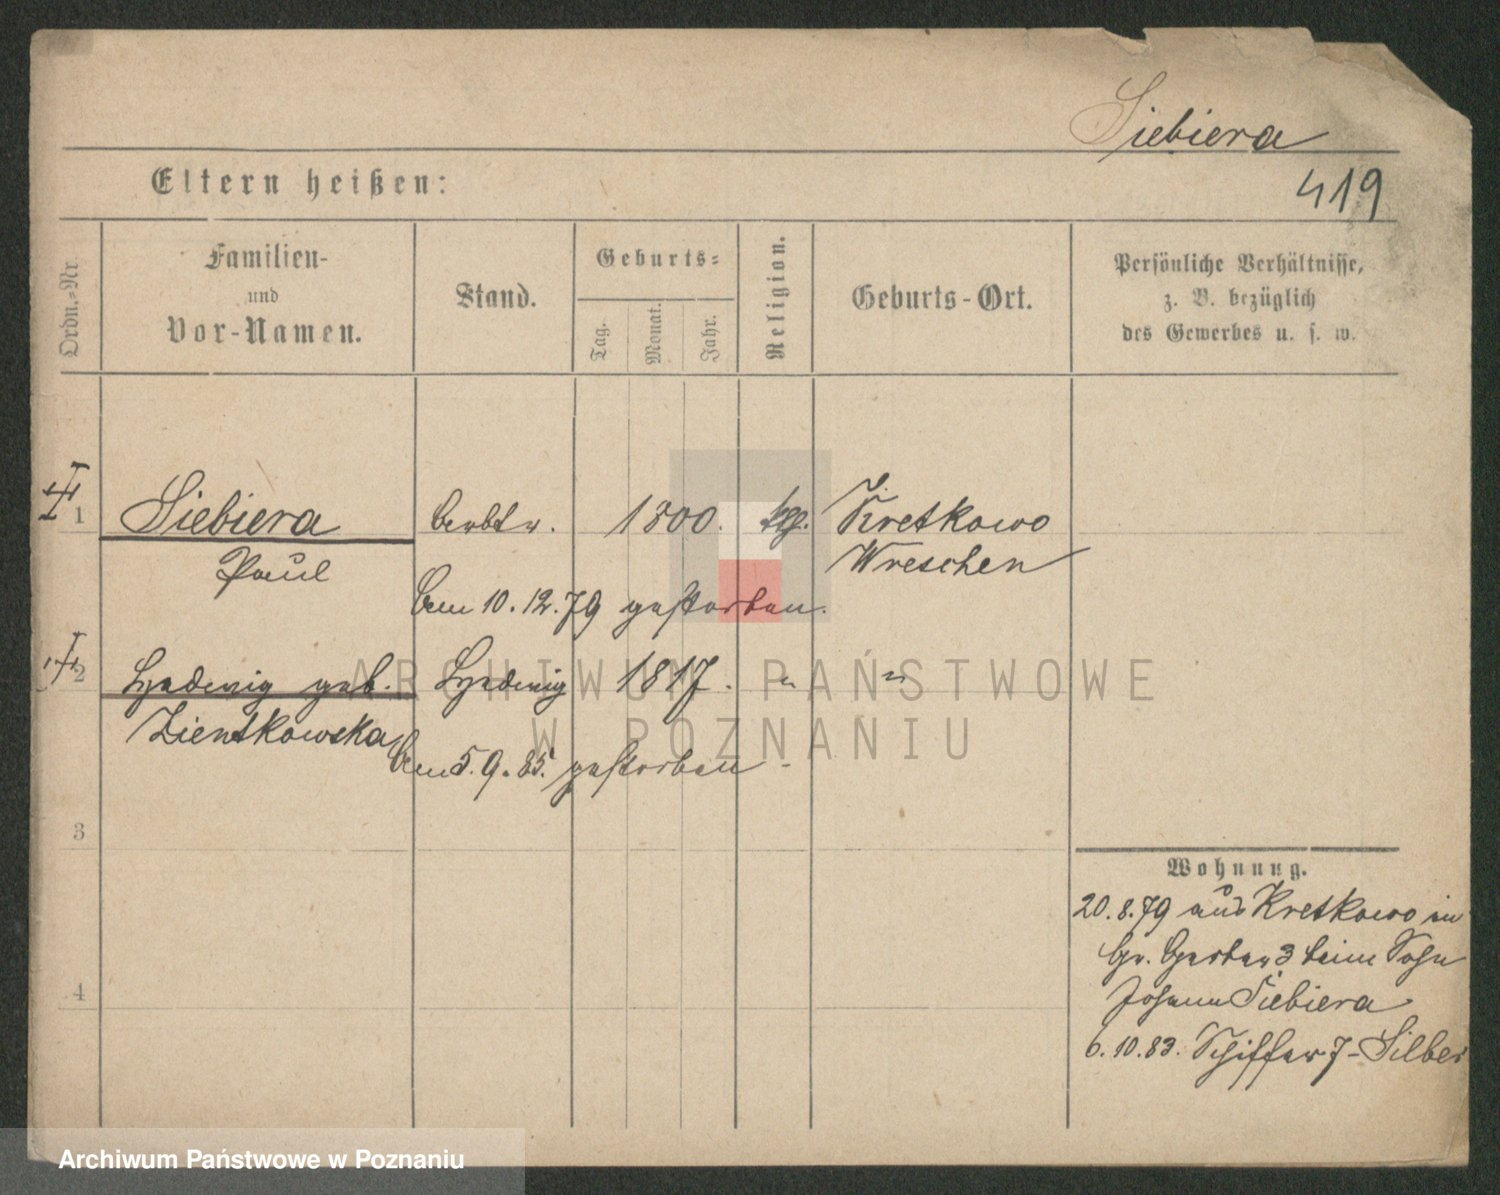 Siebiera
Eltern heißen:
419
Ordn.-Nr.
Familien-
und
Vor-Namen.
Stand.
Geburts-
Tag.
Monat.
Jahr.
Religion.
Geburts-Ort.
Persönliche Verhältnisse,
z. B. bezüglich
des Gewerbes u. s. w.
1
Siebiera
Arbtr.
1800.
kg.
Kretkowo
Paul
Wreschen
Am 10.12.79 gestorben.
2
Hedwig geb.
Hedwig
1817.
"
"
Zientkowska
Am 5.9.85. gestorben -
3
4
Wohnung.
20.8.79 aus Kretkowo in
Gr. Gerber 3 beim Sohn
Johann Siebiera
6.10.83. Schiffer 7- Silber
ARCHIWUM PAŃSTWOWE
W POZNANIU
Archiwum Państwowe w Poznaniu